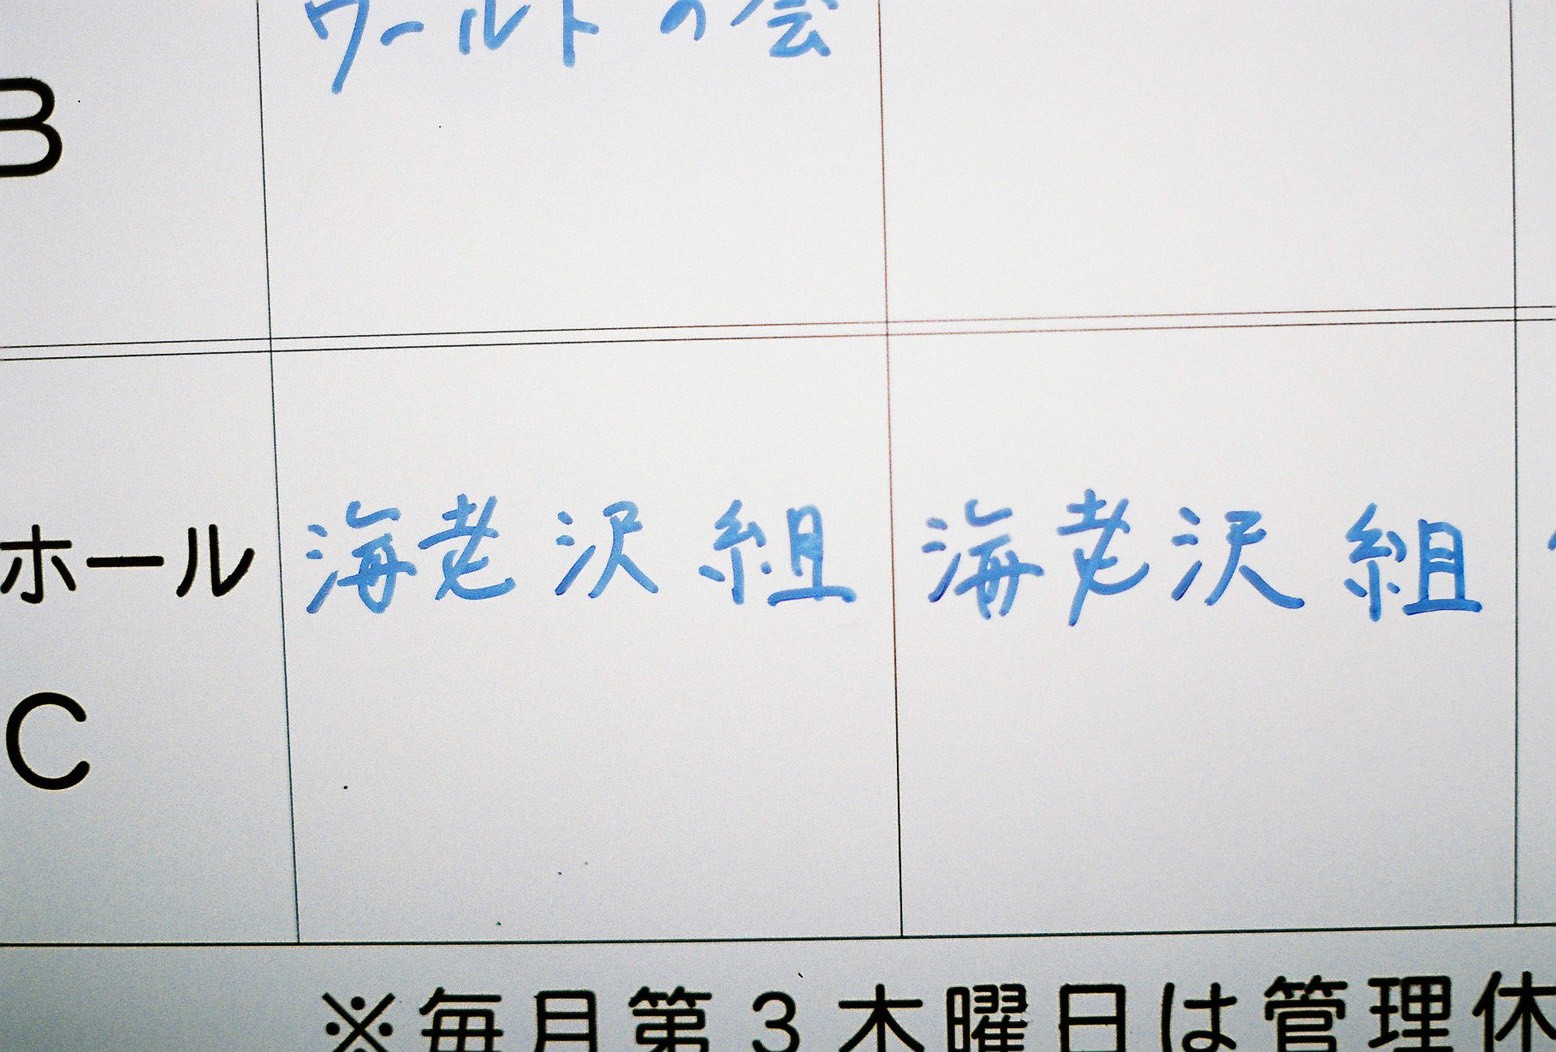 ワールドの会
B
ホール 海老沢組 海老沢組
C
※毎月第3木曜日は管理休